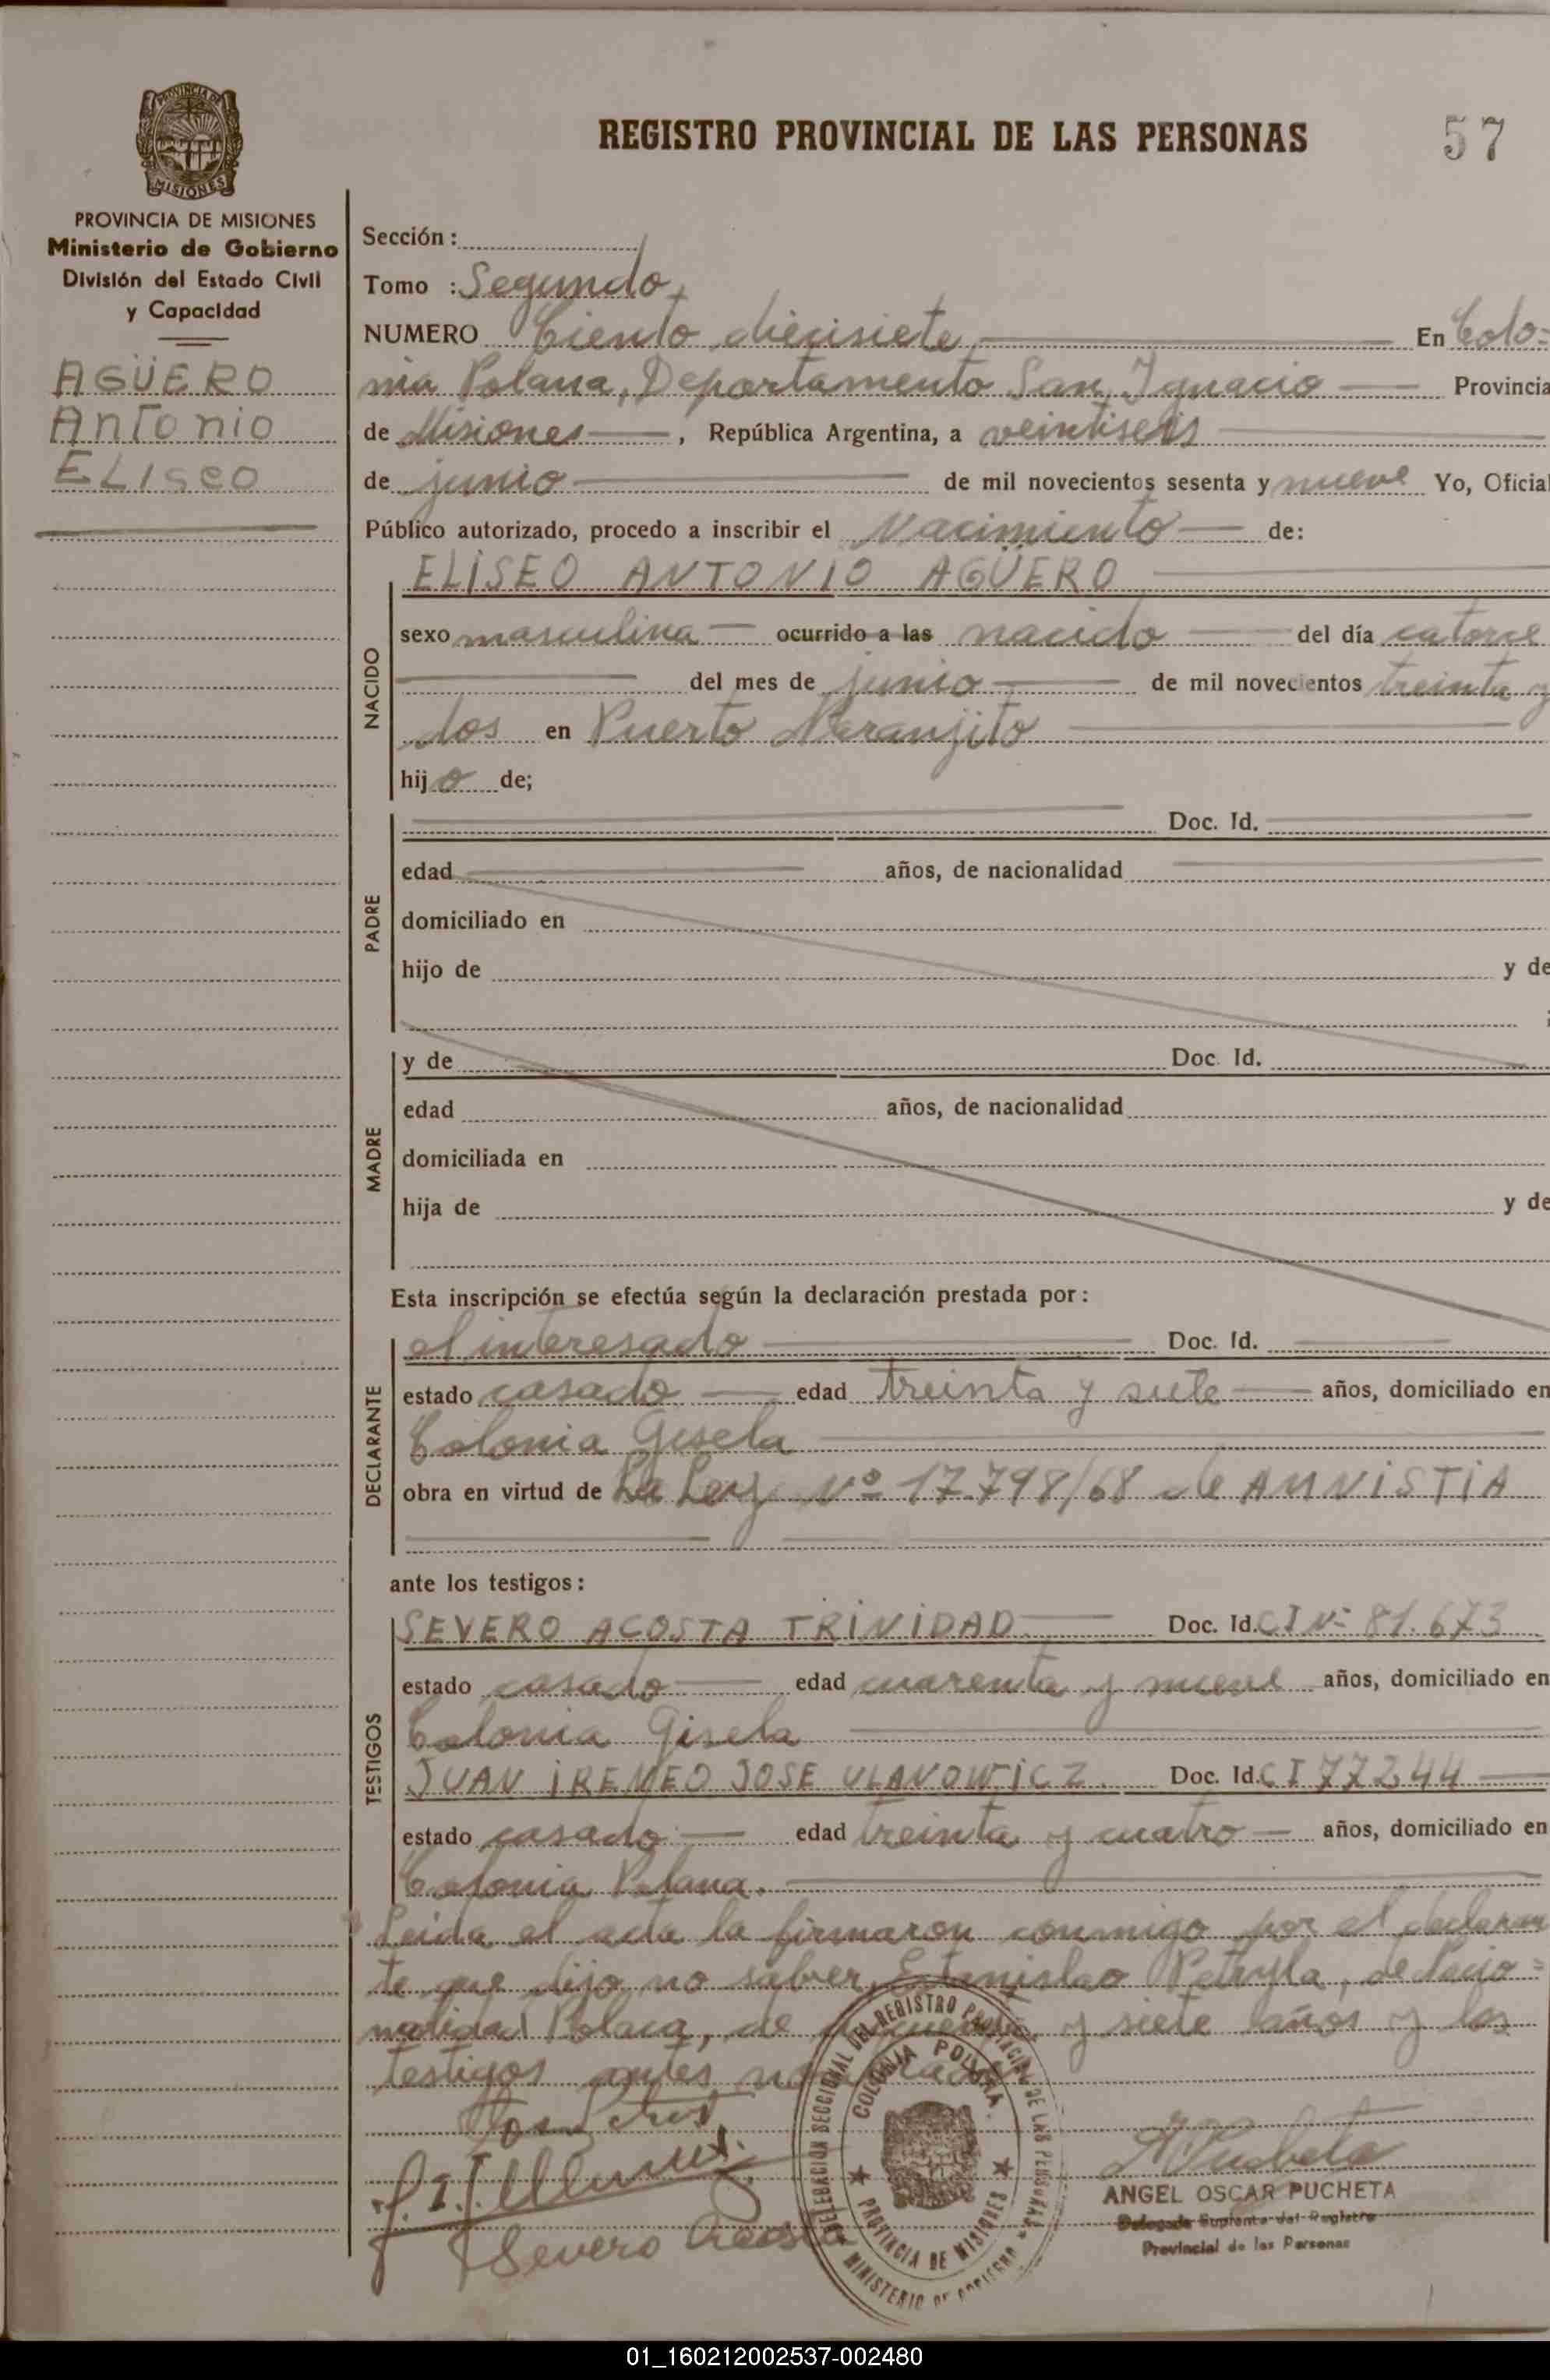 REGISTRO PROVINCIAL DE LAS PERSONAS
57
PROVINCIA DE
MISIONES
PROVINCIA DE MISIONES
Ministerio de Gobierno
División del Estado Civil
y Capacidad
AGÜERO
Antonio
ELISEO
Sección :
Tomo : Segundo
NUMERO Ciento diecisiete En Colo=
nia Polana, Departamento San Ignacio Provincia
de Misiones , República Argentina, a veintiseis
de junio de mil novecientos sesenta y nueve Yo, Oficial
Público autorizado, procedo a inscribir el Nacimiento de:
ELISEO ANTONIO AGÜERO
NACIDO
sexo masculina ocurrido a las nacido del día catorce
del mes de junio de mil novecientos treinta y
dos en Puerto Naranjito
hijo de;
PADRE
Doc. Id.
edad años, de nacionalidad
domiciliado en
hijo de y de
MADRE
y de Doc. Id.
edad años, de nacionalidad
domiciliada en
hija de y de
Esta inscripción se efectúa según la declaración prestada por :
DECLARANTE
el interesado Doc. Id.
estado casado edad treinta y siete años, domiciliado en
Colonia Gisela
obra en virtud de La Ley Nº 17.798/68 de AMNISTIA
ante los testigos :
TESTIGOS
SEVERO ACOSTA TRINIDAD Doc. Id. CI Nº 81.673
estado casado edad cuarenta y nueve años, domiciliado en
Colonia Gisela
JUAN IRENEO JOSE ULANOWICZ Doc. Id. CI 77244
estado casado edad treinta y cuatro años, domiciliado en
Colonia Polana.
Leida el acta la firmaron conmigo por el declaran
te que dijo no saber, Estanislao Petryla, de Nacio=
nalidad Polaca, de y siete años y los
testigos antes
Severo Acosta
DELEGACION SECCIONAL DEL REGISTRO PROVINCIAL DE LAS PERSONAS
COLONIA POLANA
PROVINCIA DE MISIONES
MINISTERIO DE GOBIERNO
ANGEL OSCAR PUCHETA
Delegado Suplente del Registro
Provincial de las Personas
01_160212002537-002480